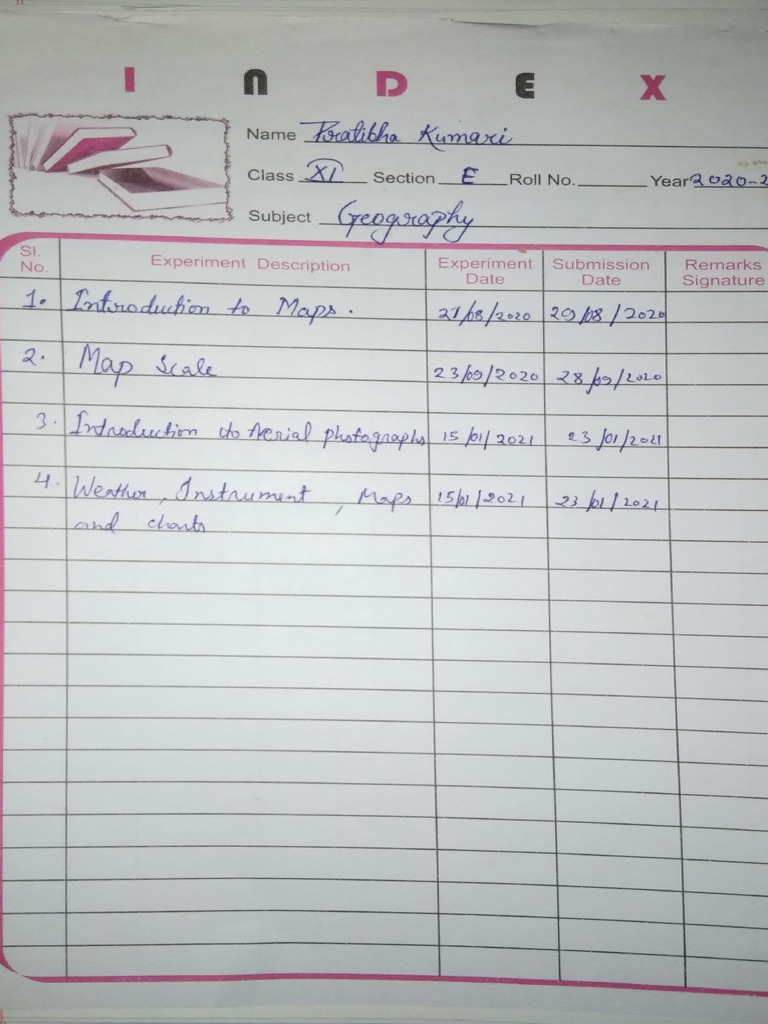 INDEX
Name Pratibha Kumari
Class XI Section E Roll No. Year 2020-2
Subject Geography
Sl. No. Experiment Description Experiment Date Submission Date Remarks Signature
1. Introduction to Maps. 27/08/2020 29/08/2020
2. Map Scale 23/09/2020 28/09/2020
3. Introduction to Aerial photographs 15/01/2021 23/01/2021
4. Weather, Instrument, Maps 15/01/2021 23/01/2021
and charts